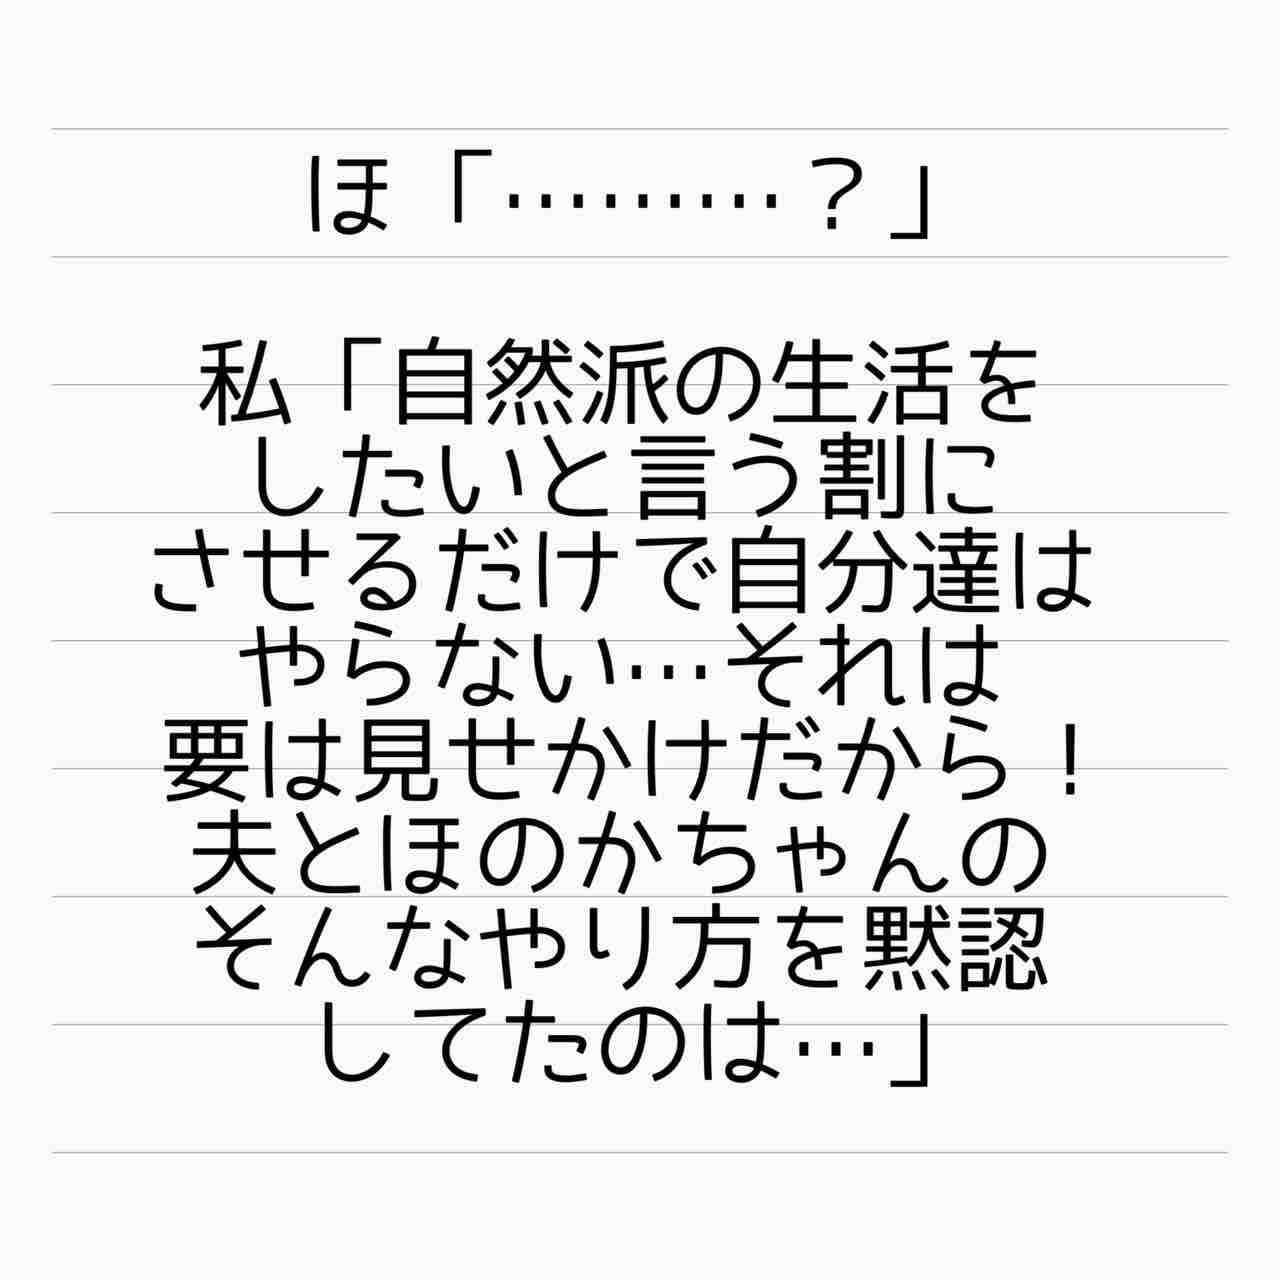 ほ「………？」
私「自然派の生活を
したいと言う割に
させるだけで自分達は
やらない…それは
要は見せかけだから！
夫とほのかちゃんの
そんなやり方を黙認
してたのは…」